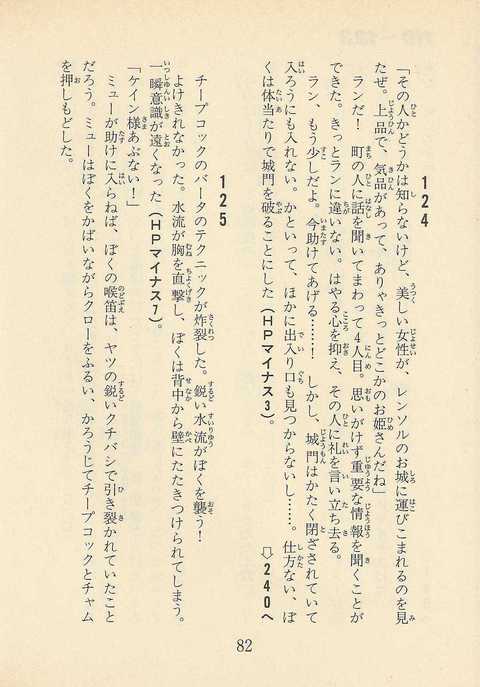 124
「その人かどうかは知らないけど、美しい女性が、レンソルのお城に運びこまれるのを見
たぜ。上品で、気品があって、ありゃきっとどこかのお姫さんだね」
ランだ！　町の人に話を聞いてまわって４人目。思いがけず重要な情報を聞くことが
できた。きっとランに違いない。はやる心を抑え、その人に礼を言い立ち去る。
ラン、もう少しだよ。今助けてあげる……！　しかし、城門はかたく閉ざされていて
入ろうにも入れない。かといって、ほかに出入り口も見つからないし……。仕方ない、ぼ
くは体当たりで城門を破ることにした（HPマイナス3）。
⇨240へ
125
チープコックのバータのテクニックが炸裂した。鋭い水流がぼくを襲う！
よけきれなかった。水流が胸を直撃し、ぼくは背中から壁にたたきつけられてしまう。
一瞬意識が遠くなった（HPマイナス7）。
「ケイン様あぶない！」
ミューが助けに入らねば、ぼくの喉笛は、ヤツの鋭いクチバシで引き裂かれていたこと
だろう。ミューはぼくをかばいながらクローをふるい、かろうじてチープコックとチャム
を押しもどした。
82